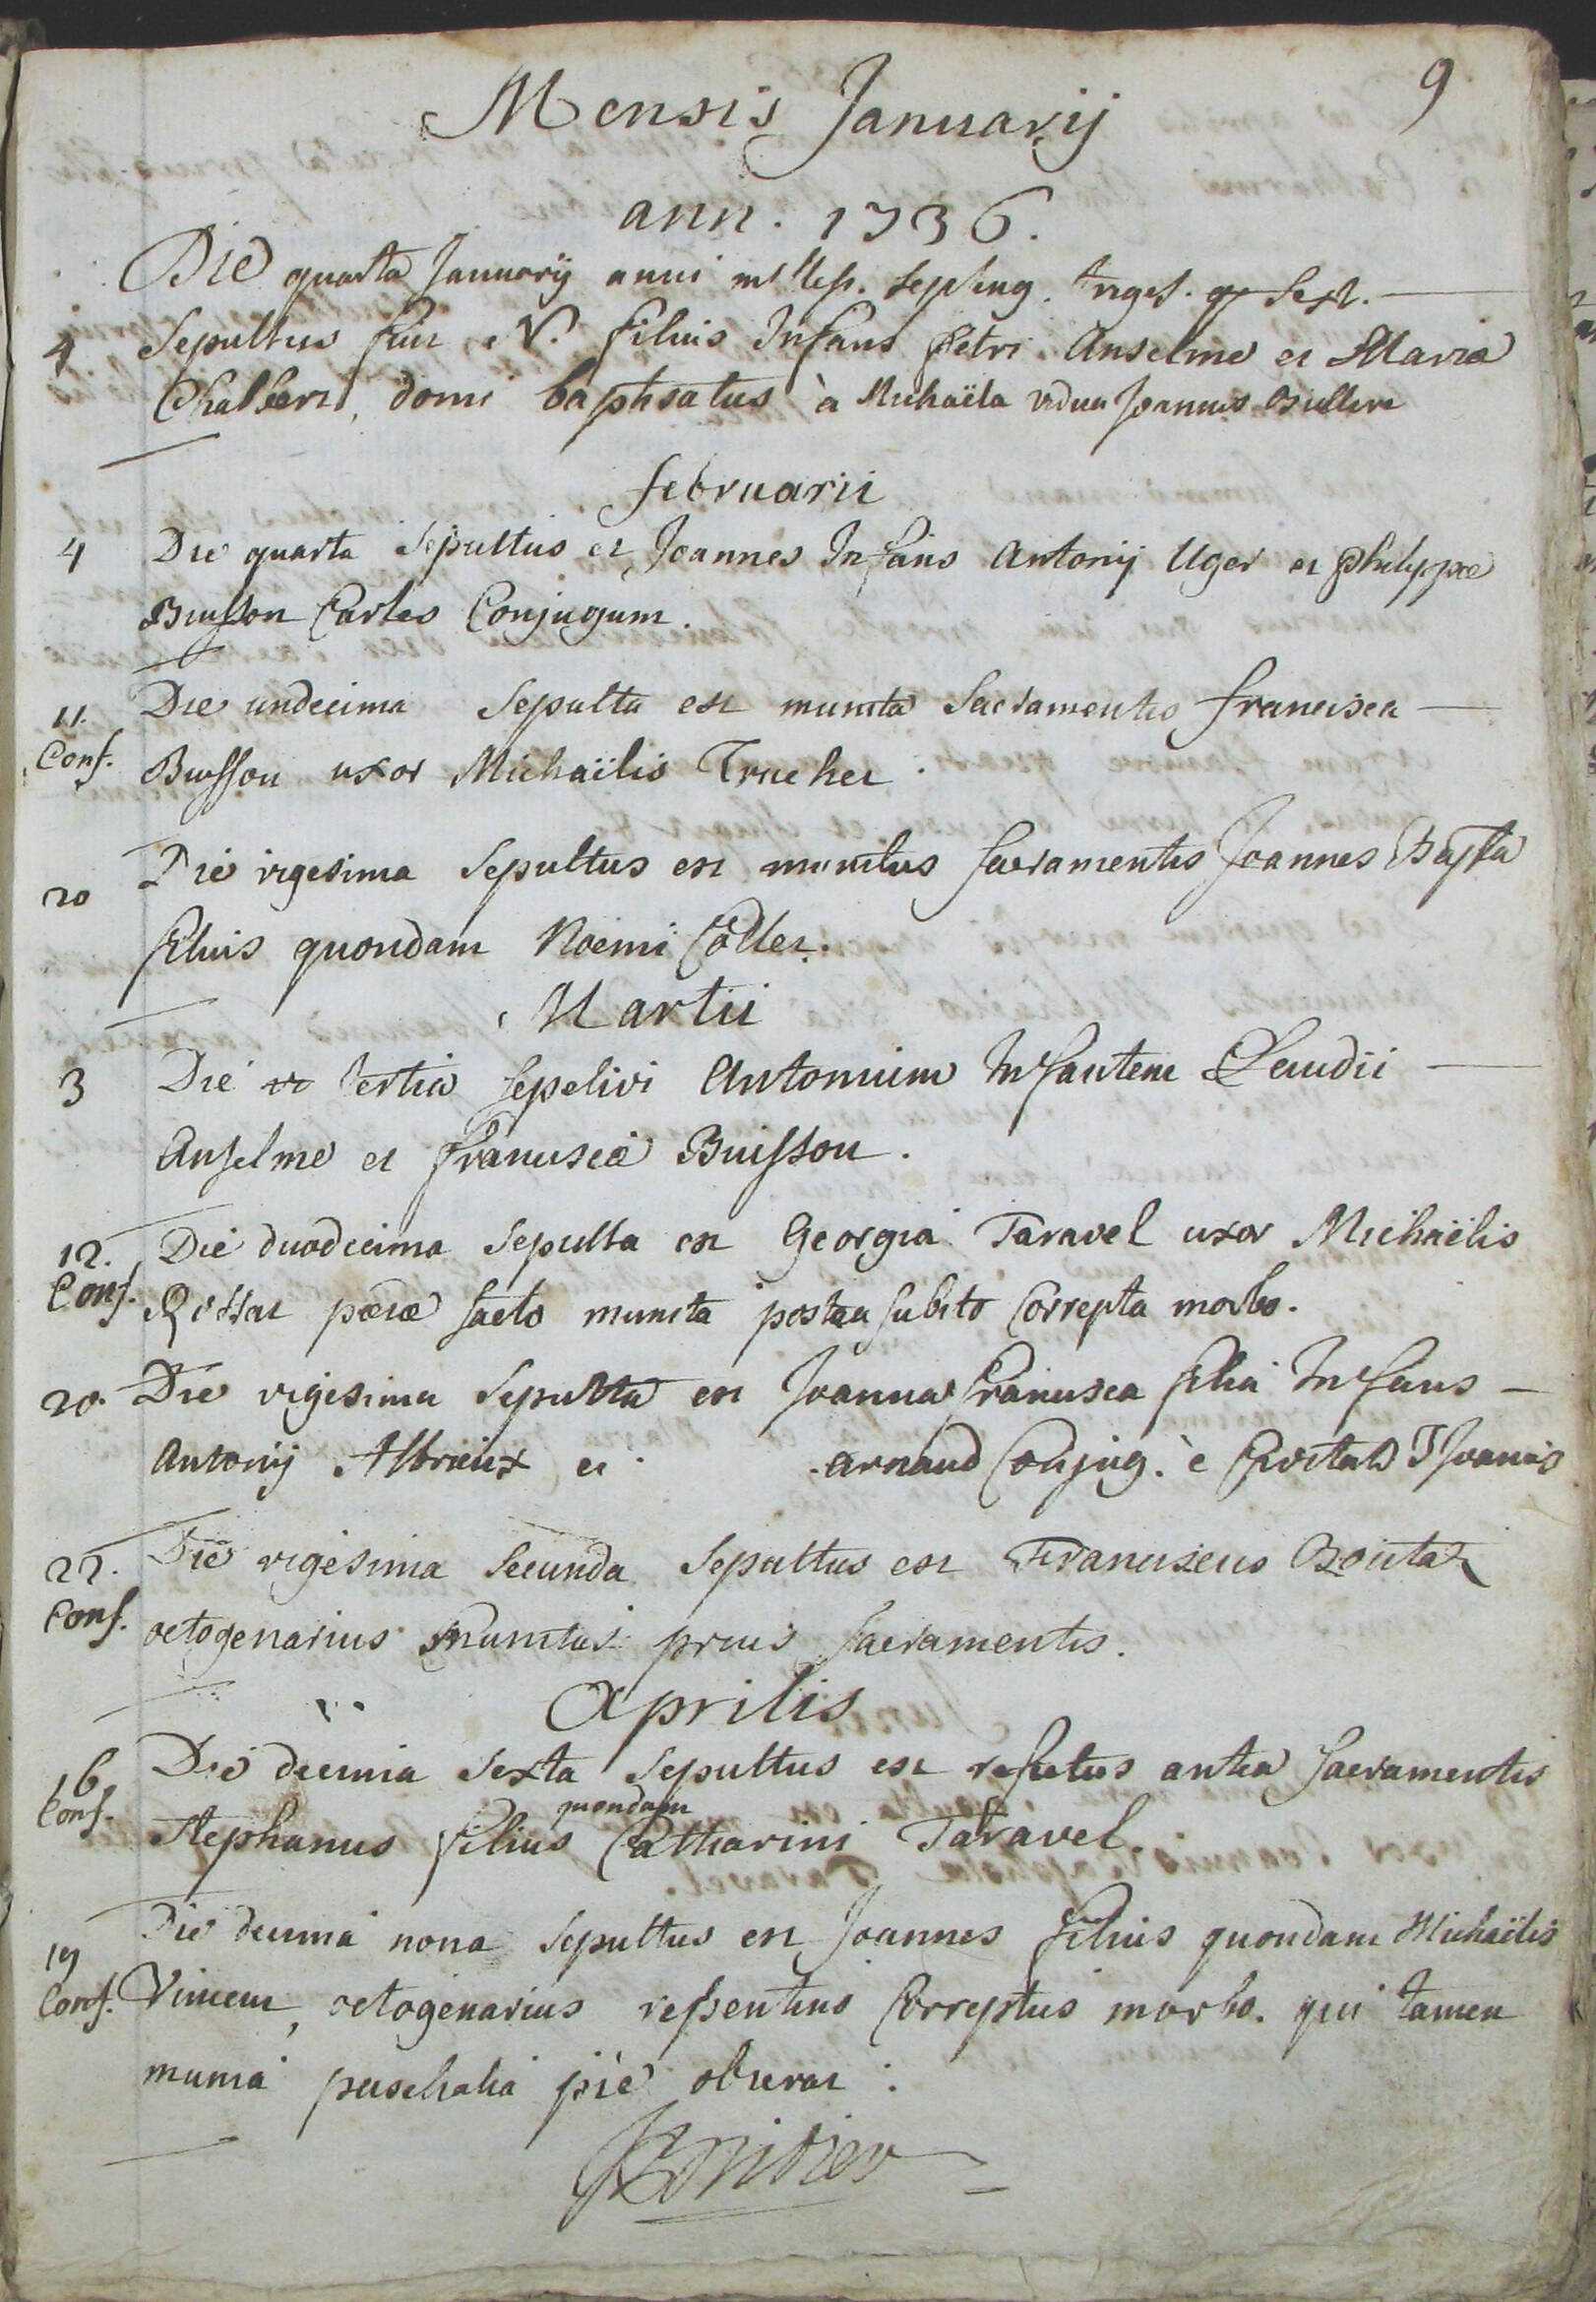 9
Mensis Januarij
ann. 1736.
Die quarta Januarij anni mlles. septing. triges. sext.
4 Sepultus fuit N. filius Infans petri Anselme et Maria
Chalbert, domi baptisatus à Michaëla vidua Joannis
februarii
4 Die quarta Sepultus est Joannes Infans Antonij Uger et philippæ
Buisson Carles Conjugum.
11. Die undecima Sepulta est munita Sacramentis francisca
Conf. Buisson uxor Michaëlis Truchet.
20 Die vigesima Sepultus est munitus sacramentis Joannes Bapta
filius quondam Noemi Collet.
Martii
3 Die tertia sepelivi Antonium Infantem Claudii
Anselme et franciscæ Buisson.
12. Die duodecima Sepulta est Georgia Taravel uxor Michaëlis
Conf. munita postea subito correpta morbo.
20. Die vigesima Sepulta est Joanna francisca filia Infans
Antonij Albrieux et arnaud Conjug. è Civitate S Joannis
22. Die vigesima secunda Sepultus est Franciscus
Conf. octogenarius munitus prius sacramentis.
Aprilis
16 Die decima sexta Sepultus est refectus antea sacramentis
Conf. Stephanus filius quondam Catharini Taravel.
19 Die decima nona sepultus est Joannes filius quondam Michaëlis
Conf. Vincent, octogenarius repentino Correptus morbo. qui tamen
munia paschalia piè obierat.